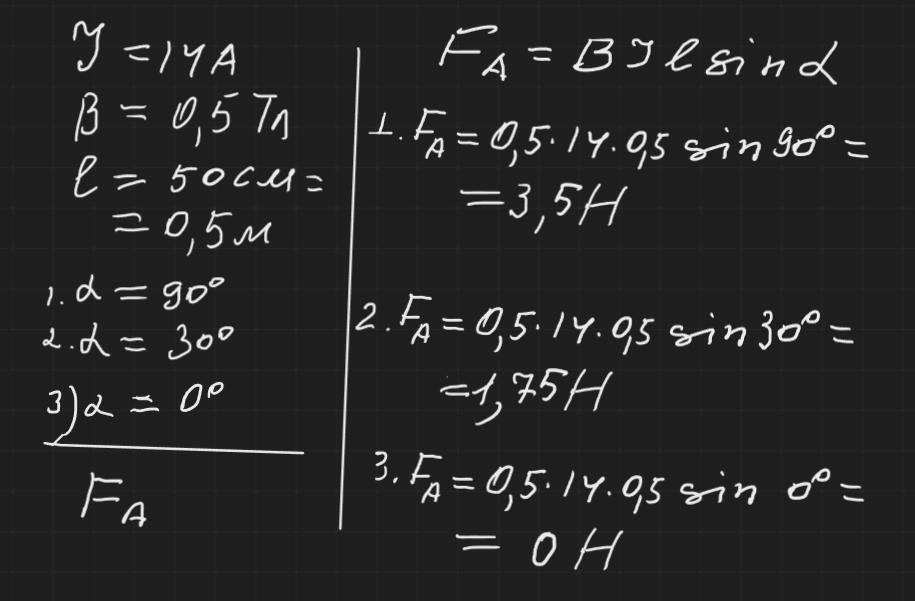 I = 14 A
B = 0,5 Тл
l = 50 см =
= 0,5 м
1. α = 90°
2. α = 30°
3) α = 0°
F_A
F_A = B I l sin α
1. F_A = 0,5 · 14 · 0,5 sin 90° =
= 3,5 Н
2. F_A = 0,5 · 14 · 0,5 sin 30° =
= 1,75 Н
3. F_A = 0,5 · 14 · 0,5 sin 0° =
= 0 Н